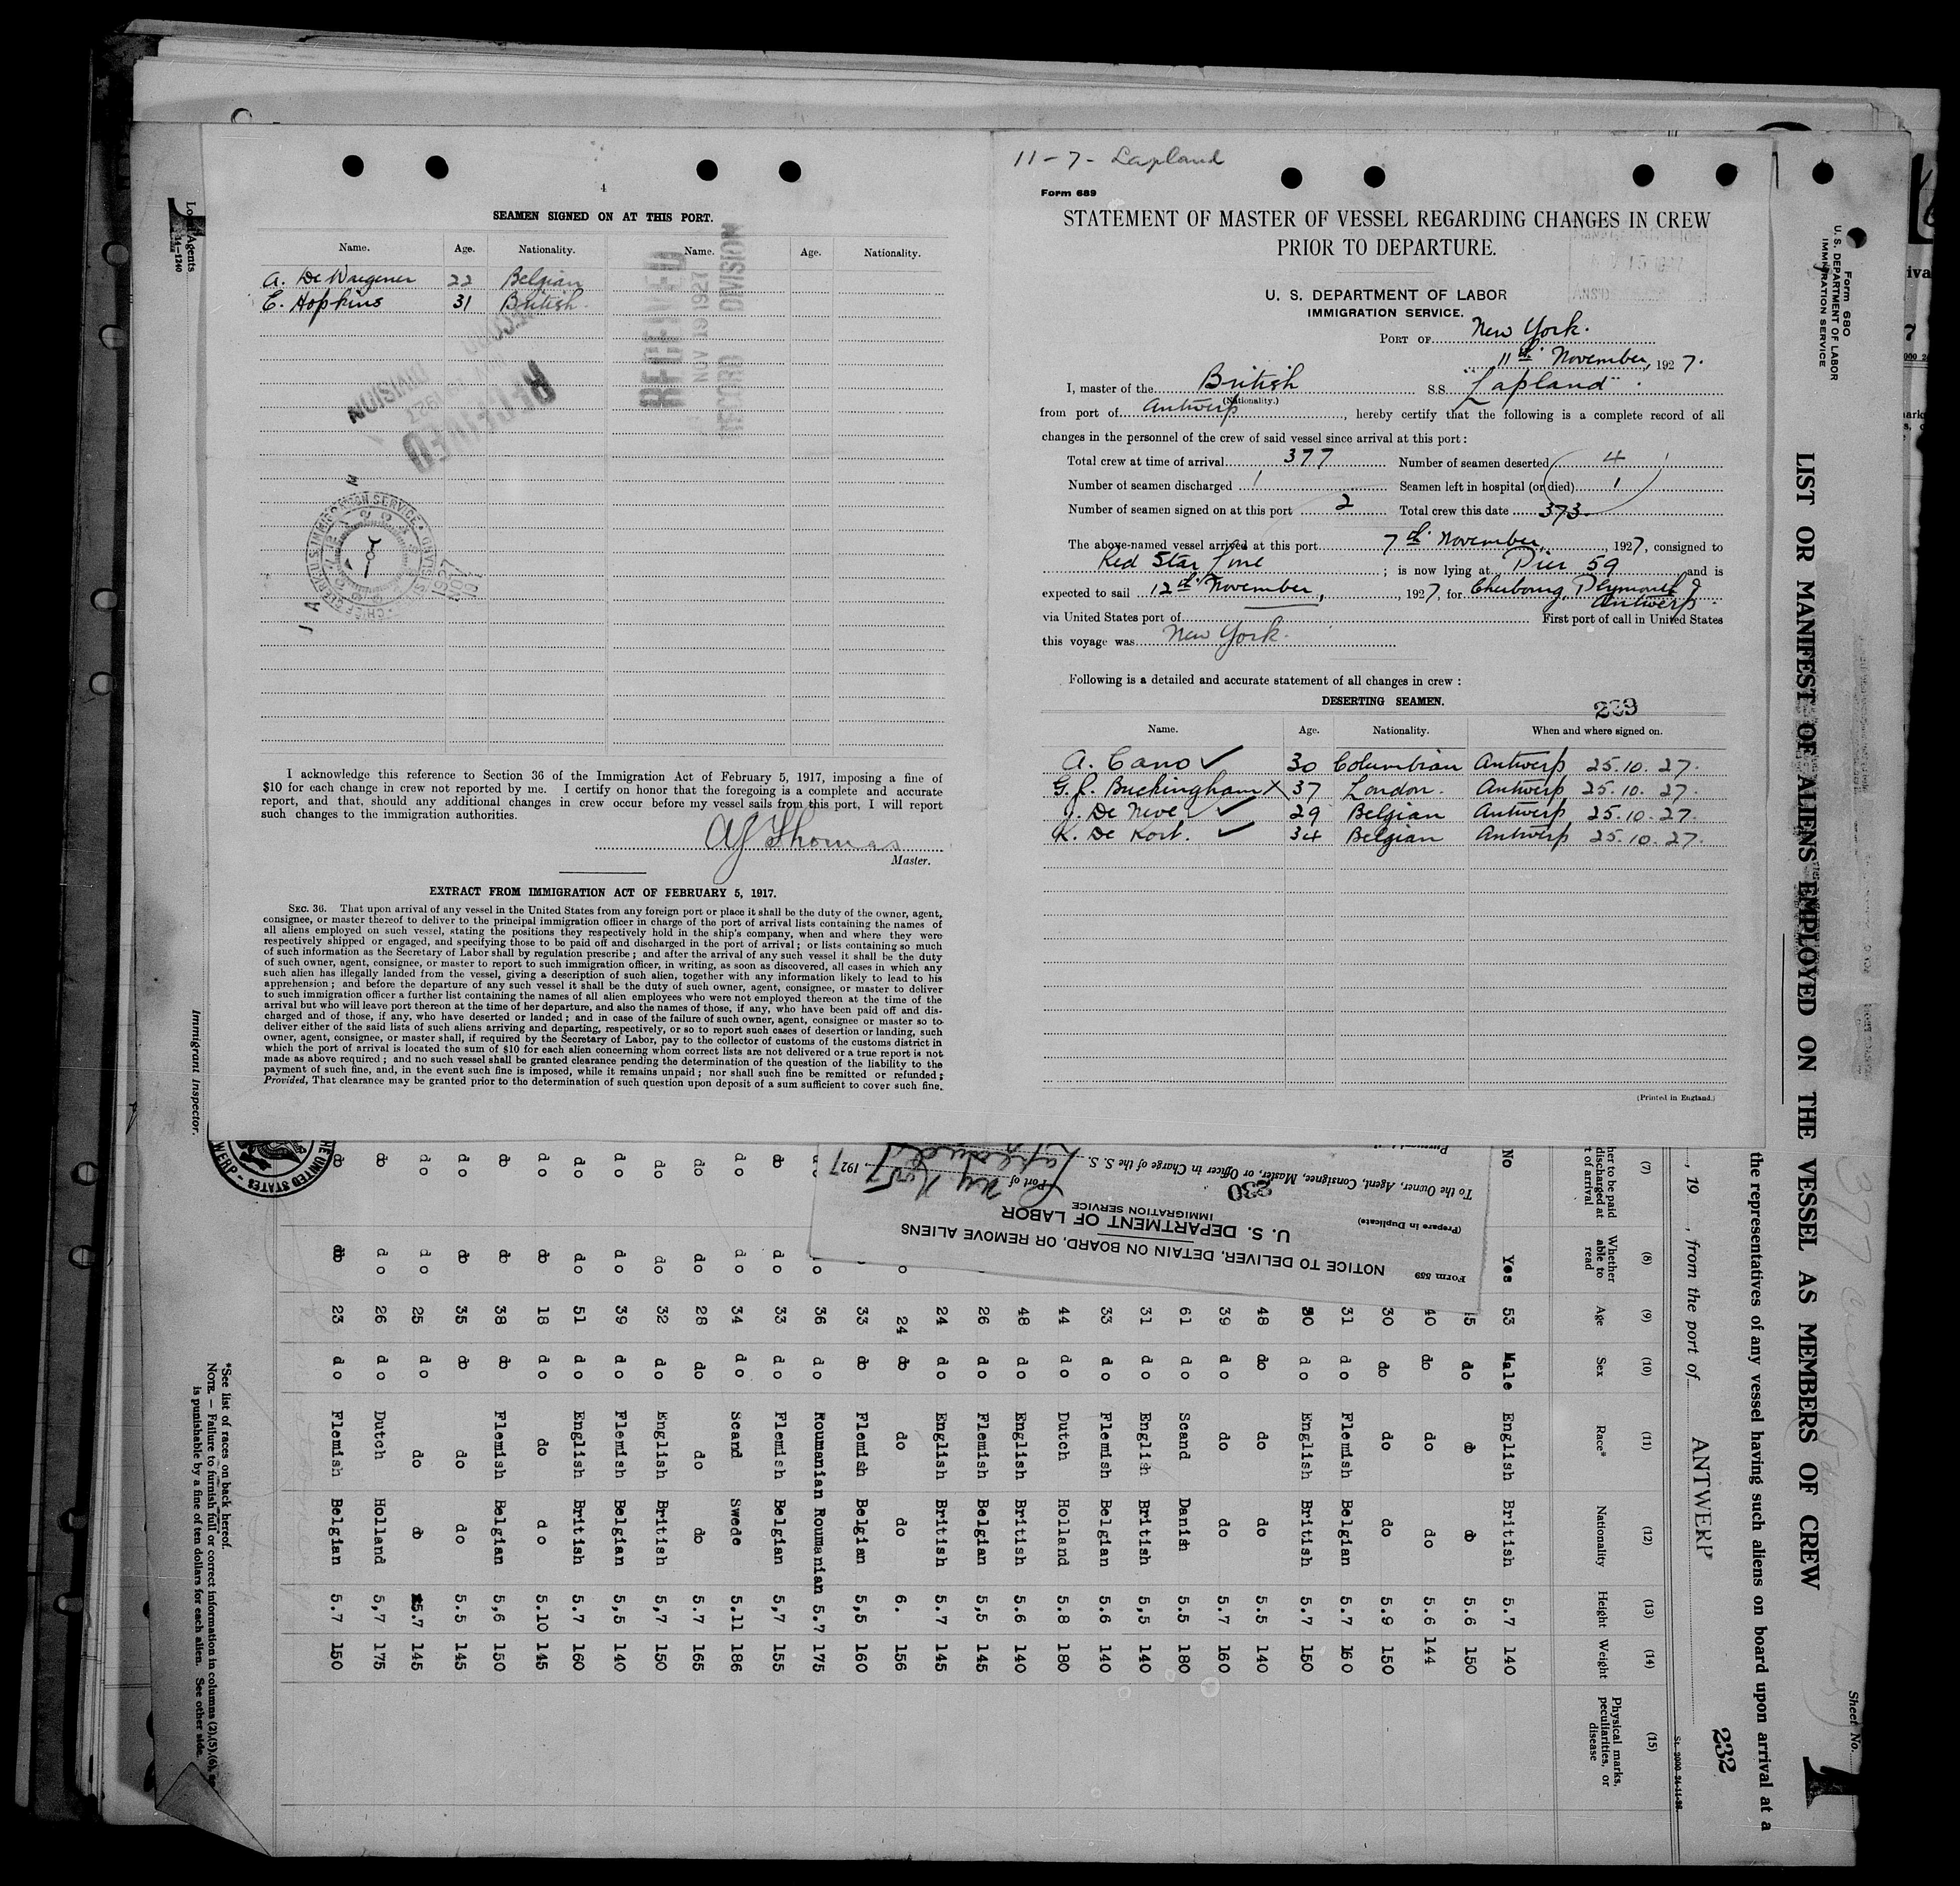 4
SEAMEN SIGNED ON AT THIS PORT.
Name. Age. Nationality. Name. Age. Nationality.
A. De Waegener 22 Belgian
E. Hopkins 31 British
RECEIVED
NOV 19 1927
RECORD DIVISION
RECEIVED
DIVISION
I acknowledge this reference to Section 36 of the Immigration Act of February 5, 1917, imposing a fine of
$10 for each change in crew not reported by me. I certify on honor that the foregoing is a complete and accurate
report, and that, should any additional changes in crew occur before my vessel sails from this port, I will report
such changes to the immigration authorities.
AJ Thomas
Master.
EXTRACT FROM IMMIGRATION ACT OF FEBRUARY 5, 1917.
SEC. 36. That upon arrival of any vessel in the United States from any foreign port or place it shall be the duty of the owner, agent,
consignee, or master thereof to deliver to the principal immigration officer in charge of the port of arrival lists containing the names of
all aliens employed on such vessel, stating the positions they respectively hold in the ship's company, when and where they were
respectively shipped or engaged, and specifying those to be paid off and discharged in the port of arrival; or lists containing so much
of such information as the Secretary of Labor shall by regulation prescribe; and after the arrival of any such vessel it shall be the duty
of such owner, agent, consignee, or master to report to such immigration officer, in writing, as soon as discovered, all cases in which any
such alien has illegally landed from the vessel, giving a description of such alien, together with any information likely to lead to his
apprehension; and before the departure of any such vessel it shall be the duty of such owner, agent, consignee, or master to deliver
to such immigration officer a further list containing the names of all alien employees who were not employed thereon at the time of the
arrival but who will leave port thereon at the time of her departure, and also the names of those, if any, who have been paid off and dis-
charged and of those, if any, who have deserted or landed; and in case of the failure of such owner, agent, consignee or master so to
deliver either of the said lists of such aliens arriving and departing, respectively, or so to report such cases of desertion or landing, such
owner, agent, consignee, or master shall, if required by the Secretary of Labor, pay to the collector of customs of the customs district in
which the port of arrival is located the sum of $10 for each alien concerning whom correct lists are not delivered or a true report is not
made as above required; and no such vessel shall be granted clearance pending the determination of the question of the liability to the
payment of such fine, and, in the event such fine is imposed, while it remains unpaid; nor shall such fine be remitted or refunded:
Provided, That clearance may be granted prior to the determination of such question upon deposit of a sum sufficient to cover such fine.
11-7- Lapland
Form 689
STATEMENT OF MASTER OF VESSEL REGARDING CHANGES IN CREW
PRIOR TO DEPARTURE.
U. S. DEPARTMENT OF LABOR
IMMIGRATION SERVICE.
PORT OF New York.
11th November, 1927.
I, master of the British S.S. "Lapland".
(Nationality.)
from port of Antwerp, hereby certify that the following is a complete record of all
changes in the personnel of the crew of said vessel since arrival at this port:
Total crew at time of arrival 377 Number of seamen deserted 4
Number of seamen discharged 1 Seamen left in hospital (or died) 1
Number of seamen signed on at this port 2 Total crew this date 373.
The above-named vessel arrived at this port 7th November, 1927, consigned to
Red Star Line; is now lying at Pier 59 and is
expected to sail 12th November, 1927, for Cherbourg, Plymouth &
Antwerp.
via United States port of First port of call in United States
this voyage was New York.
Following is a detailed and accurate statement of all changes in crew:
DESERTING SEAMEN.
239
Name. Age. Nationality. When and where signed on.
A. Cano ✓ 30 Columbian Antwerp 25.10.27.
G. J. Buckingham X 37 London. Antwerp 25.10.27.
J. De Neve ✓ 29 Belgian Antwerp 25.10.27.
K. De Kort. ✓ 34 Belgian Antwerp 25.10.27.
(Printed in England.)
Form 680
U. S. DEPARTMENT OF LABOR
IMMIGRATION SERVICE
LIST OR MANIFEST OF ALIENS EMPLOYED ON THE VESSEL AS MEMBERS OF CREW
Sheet No. 1
the representatives of any vessel having such aliens on board upon arrival at a
, 19 , from the port of ANTWERP
232
(7) (8) (9) (10) (11) (12) (13) (14) (15)
Whether able to read Age Sex Race* Nationality Height Weight Physical marks, peculiarities, or disease
No Yes 53 Male English British 5.7 140
do do do 5.6 150
40 do do do 5.6 144
30 do do do 5.9 150
31 do Flemish Belgian 5.7 160
30 do English British 5.7 150
48 do do do 5.5 140
39 do do do 5.7 160
61 do Scand Danish 5.5 180
31 do English British 5,5 140
33 do Flemish Belgian 5.6 140
44 do Dutch Holland 5.8 180
48 do English British 5.6 140
26 do Flemish Belgian 5,5 145
24 do English British 5.7 145
24 do do do 6. 156
33 do Flemish Belgian 5,5 160
36 do Roumanian Roumanian 5.7 175
do do 33 do Flemish Belgian 5,7 155
do do 34 do Scand Swede 5.11 186
do do 28 do do do 5.7 165
do do 32 do English British 5,7 150
do do 39 do Flemish Belgian 5,5 140
do do 51 do English British 5.7 160
do do 18 do do do 5.10 145
do do 38 do Flemish Belgian 5,6 150
do do 35 do do do 5.5 145
do do 25 do do do 5.7 145
do do 26 do Dutch Holland 5,7 175
do do 23 do Flemish Belgian 5.7 150
Form 559
NOTICE TO DELIVER, DETAIN ON BOARD, OR REMOVE ALIENS
U. S. DEPARTMENT OF LABOR
IMMIGRATION SERVICE
(Prepare in Duplicate)
230
Port of NY Nov 7, 1927
To the Owner, Agent, Consignee, Master, or Officer in Charge of the S. S. Lapland
*See list of races on back hereof.
NOTE. — Failure to furnish full or correct information in columns (2),(5),(6),
is punishable by a fine of ten dollars for each alien. See other side.
Immigrant Inspector.
14-1240